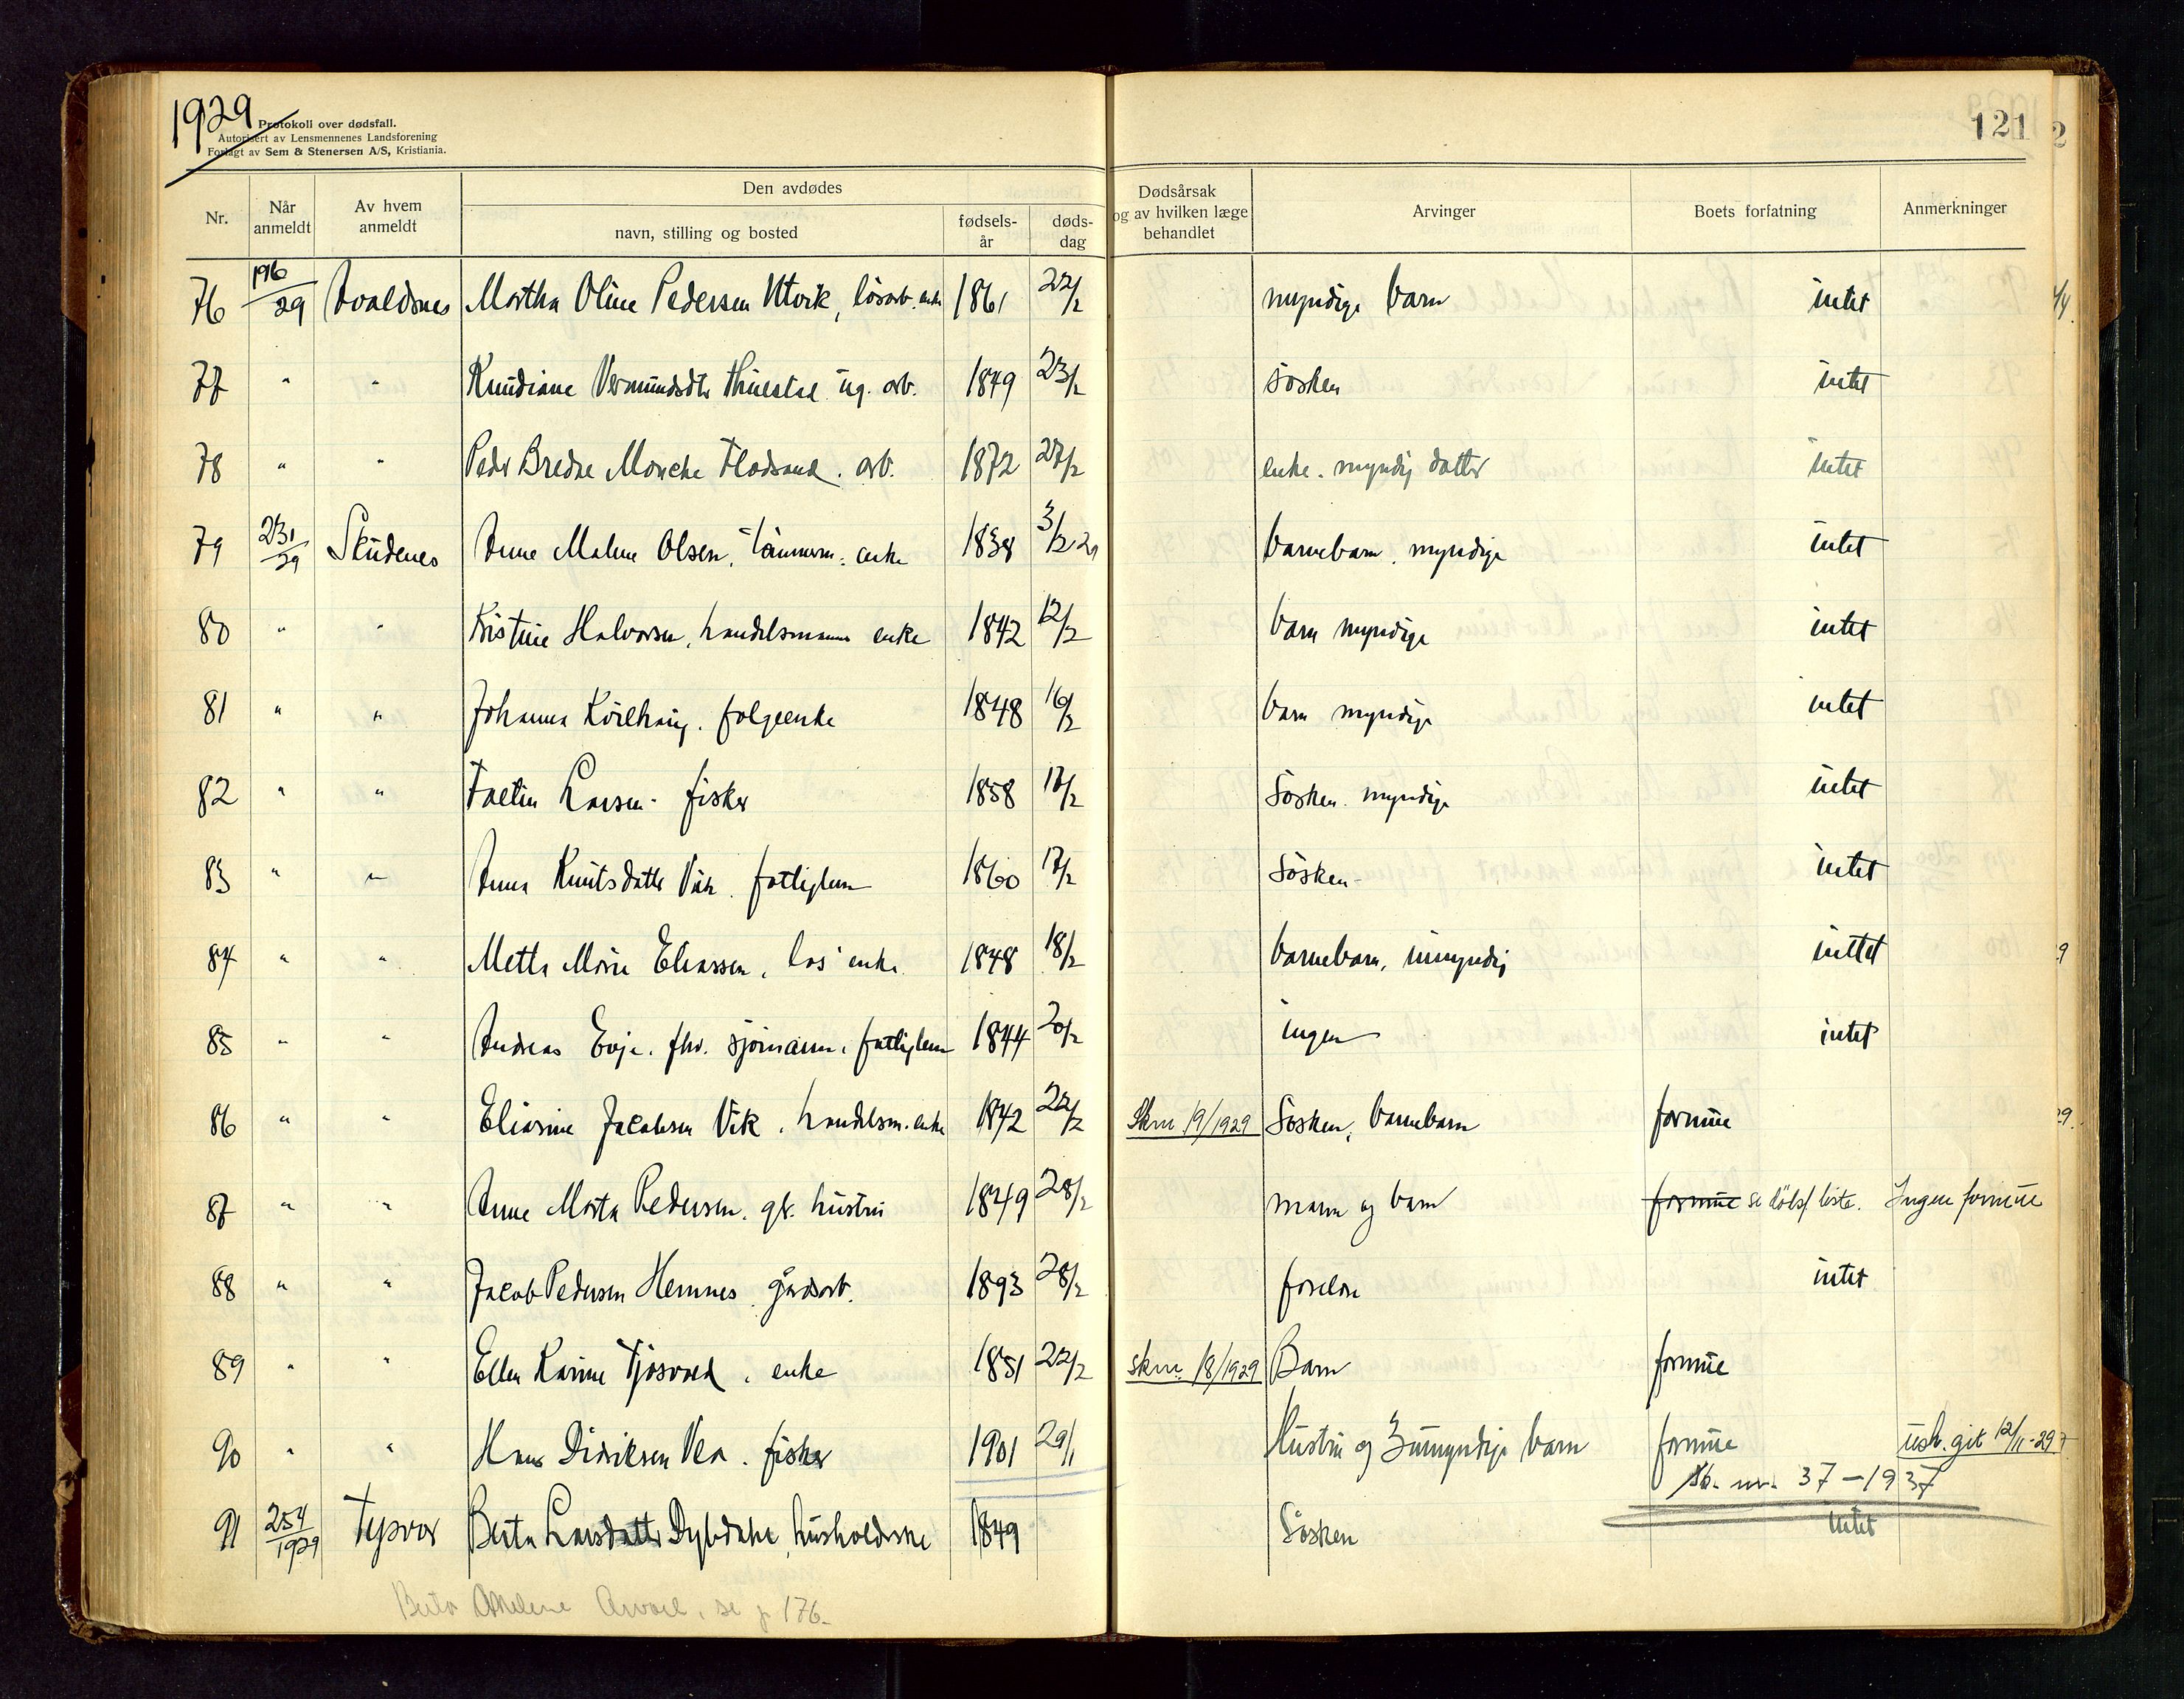 1929
Protokoll over dødsfall.
Autorisert av Lensmennenes Landsforening
Forlagt av Sem & Stenersen A/S, Kristiania.
121
2
Nr. Når anmeldt Av hvem anmeldt Den avdødes navn, stilling og bosted fødselsår dødsdag Dødsårsak og av hvilken læge behandlet Arvinger Boets forfatning Anmerkninger
76 196/29 Avaldsnes Martha Oline Pedersen Utvik, løsarb. enke 1861 22/2 myndige barn intet
77 " " Knudiane Vermundsdtr ug. arb. 1849 23/2 søsken intet
78 " " Peder Bredre Moncke Flodsand. arb. 1872 27/2 enke. myndig datter intet
79 231/29 Skudenes Anne Malene Olsen, tømmerm. enke 1838 3/2 29 barnebarn. myndige intet
80 " " Kristine Halvorsen, handelsmanns enke 1842 12/2 barn myndige intet
81 " " Johanna folgeenke 1848 16/2 barn myndige intet
82 " " Larsen. fisker 1858 17/2 Søsken. myndige intet
83 " " Anna Knutsdatter Vik. fattiglem 1860 17/2 Søsken intet
84 " " Mette Marie Eliassen, los enke 1848 18/2 barnebarn, umyndig inttet
85 " " Andreas Evje. fhv. sjømann. fattiglem 1844 20/2 ingen intet
86 " " Eliasine Jacobsen Vik, handelsm. enke 1842 22/2 Skm 19/1929 Søsken, barnebarn formue
87 " " Anne Marta Pedersen. gk. hustru 1849 28/2 mann og barn formue se dødsf. liste. Ingen formue
88 " " Jacob Pedersen Hemnes gårdsarb. 1893 28/2 foreldre intet
89 " " Ellen Karine Tjøsvold, enke 1851 22/2 skm. 18/1929 Barn formue
90 " " Hans Diriksen Vea. fisker 1901 29/1 Hustru og 3 umyndige barn formue usk. git 12/11-29
Sk. nr. 37-1937
91 254/1929 Tysvær Berta Larsdatter Dybdahl, husholderske 1849 Søsken intet
Berta se p 176.